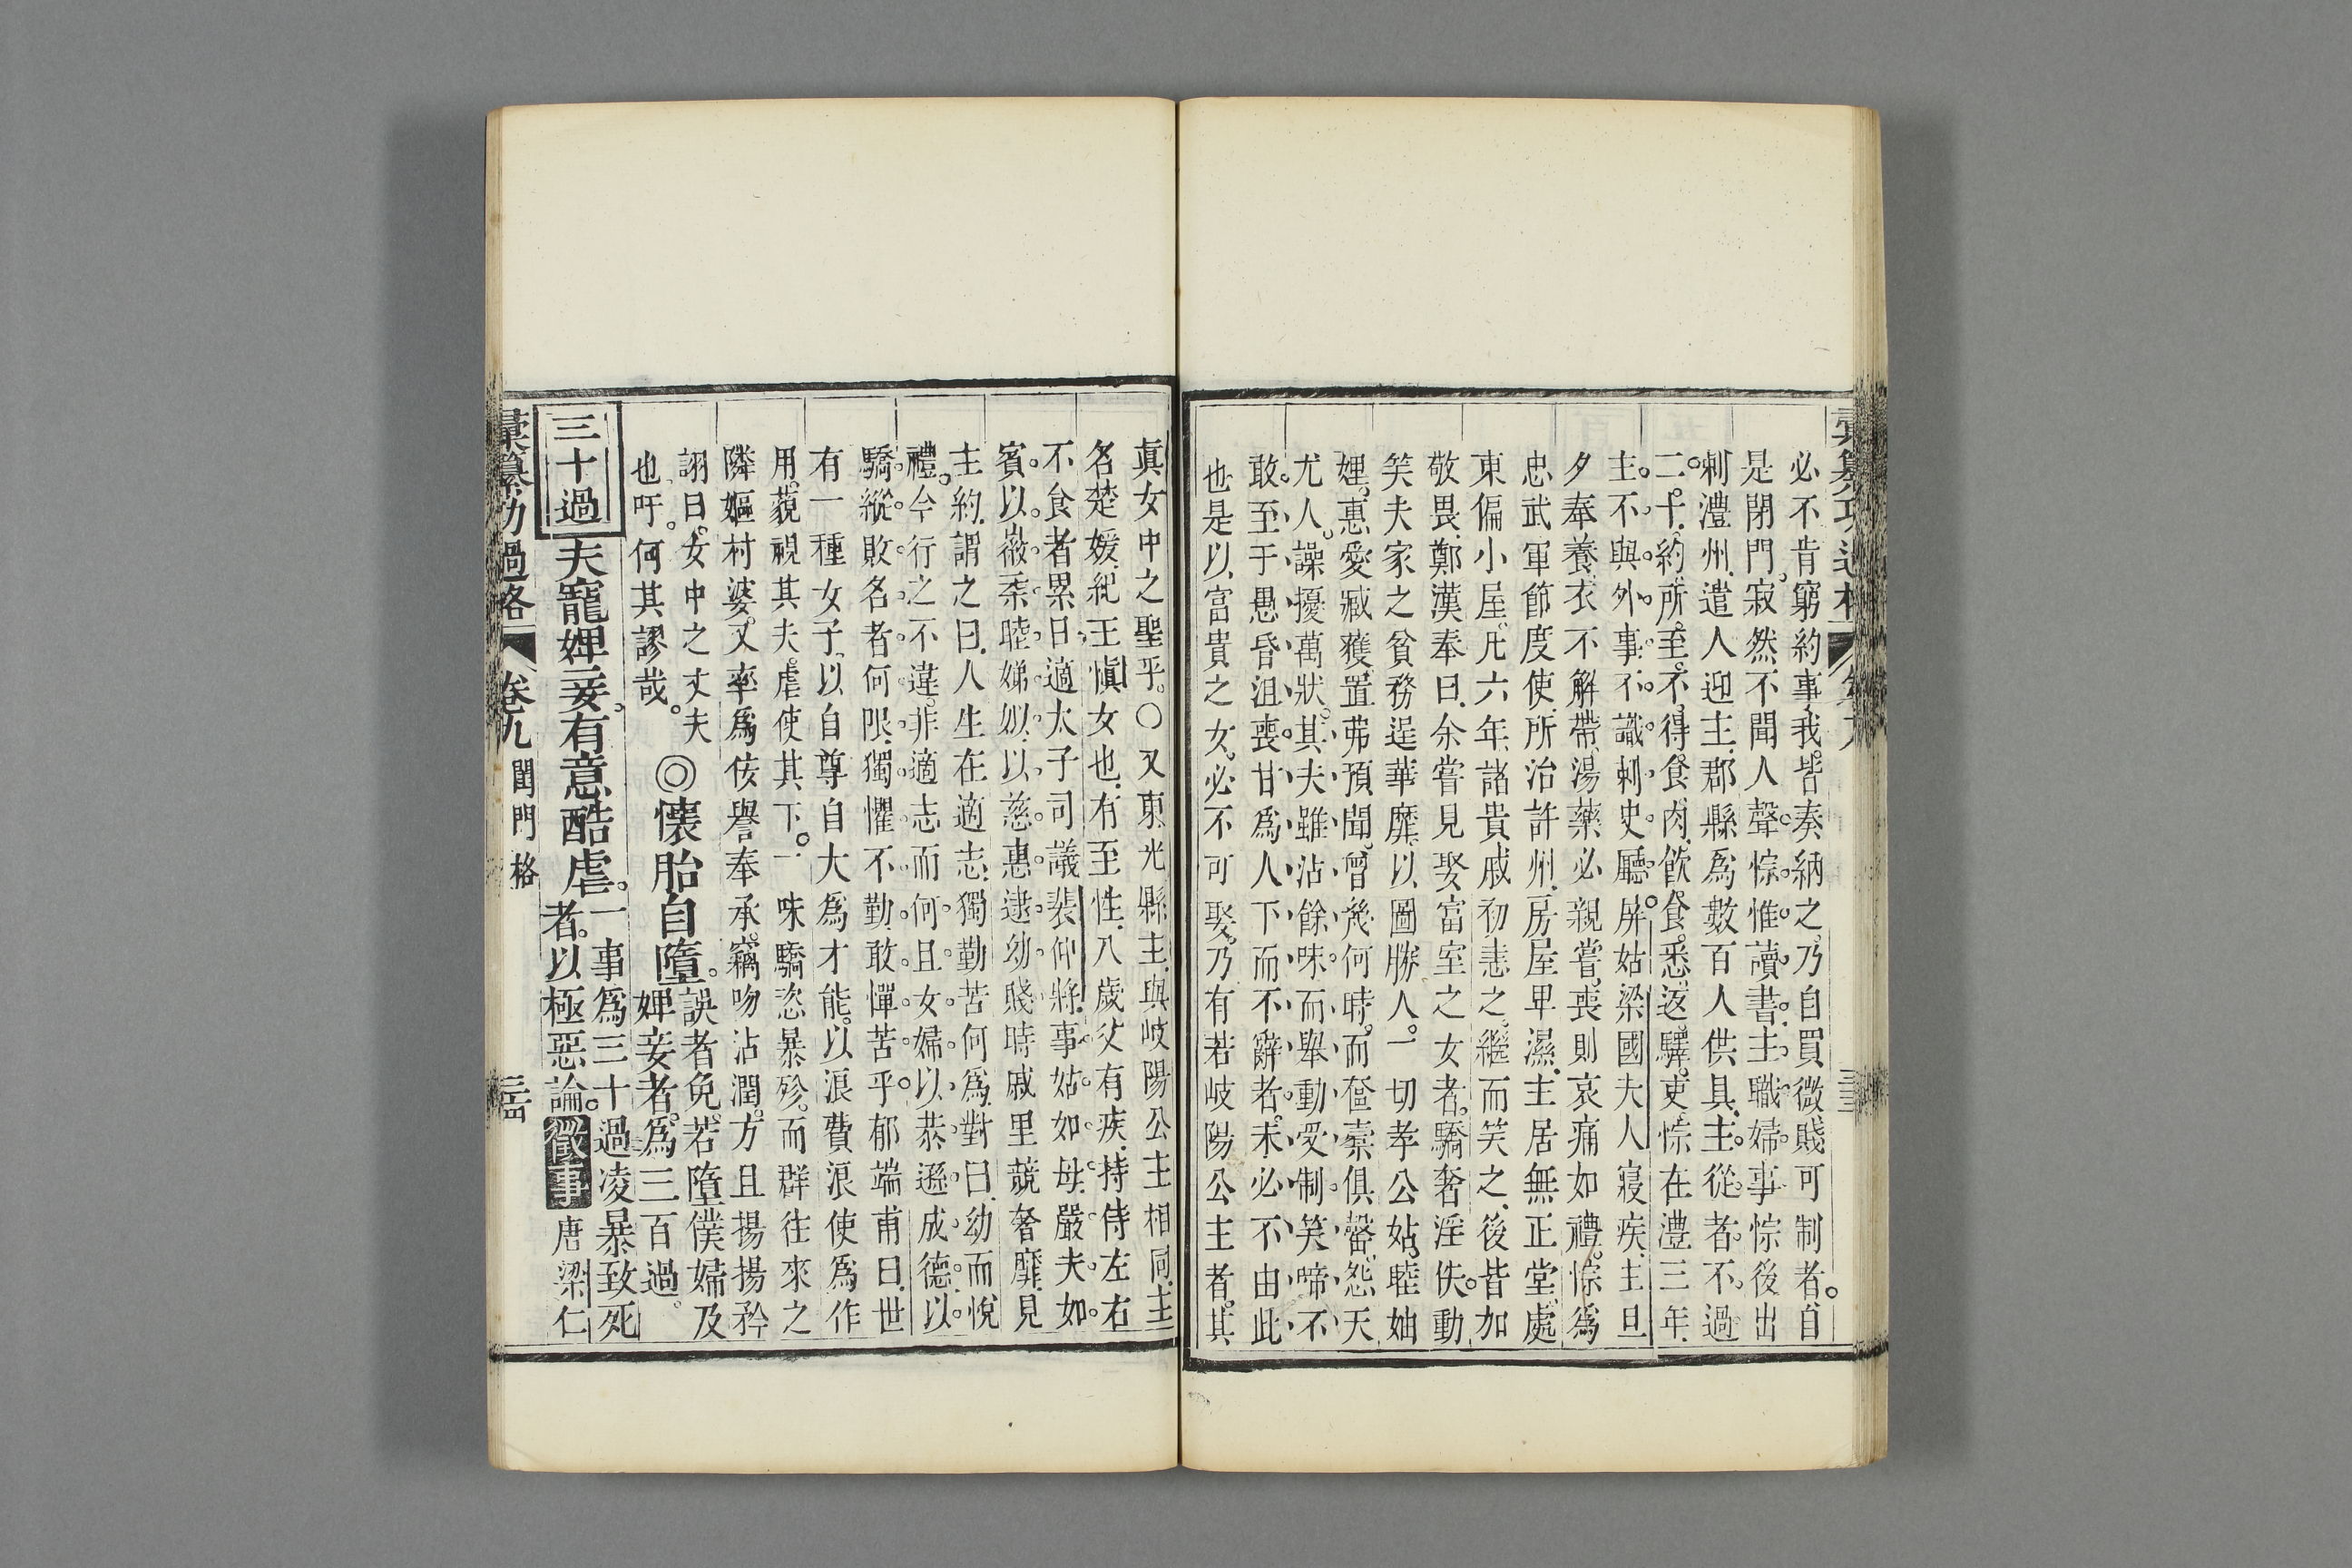 彙纂功過格
必不肯窮約事我皆奏納之乃自買微賤可制者自
是閉門寂然不聞人聲悰惟讀書主職婦事悰後出
刺澧州遣人迎主郡縣爲數百人供具主從者不過
二十約所至不得食肉飲食悉返驛吏悰在澧三年
主不與外事不識刺史廳屏姑梁國夫人寢疾主旦
夕奉養衣不解帶湯藥必親嘗喪則哀痛如禮悰爲
忠武軍節度使所治許州房屋卑濕主居無正堂處
東偏小屋凡六年諸貴戚初恚之繼而笑之後皆加
敬畏鄭漢奉曰余嘗見娶富室之女者驕奢淫佚動
笑夫家之貧務逞華靡以圖勝人一切孝公姑睦妯
娌惠愛臧獲置弗預聞曾幾何時而奩橐俱罄怨天
尤人譟擾萬狀其夫雖沾餘味而舉動受制笑啼不
敢至于愚昏沮喪甘爲人下而不辭者未必不由此
也是以富貴之女必不可娶乃有若岐陽公主者其
眞女中之聖乎○又東光縣主與岐陽公主相同主
名楚媛紀王愼女也有至性八歲父有疾持侍左右
不食者累日適太子司議裴仲將事姑如母嚴夫如
賓以嶶柔睦娣姒以慈惠逮幼賤時戚里競奢靡見
主約謂之曰人生在適志獨勤苦何爲對曰幼而悅
禮今行之不違非適志而何且女婦以恭遜成德以
驕縱敗名者何限獨懼不勤敢憚苦乎郁端甫曰世
有一種女子以自尊自大爲才能以浪費浪使爲作
用藐視其夫虐使其下一味驕恣暴殄而群往來之
隣嫗村婆又率爲侅譽奉承竊吻沾潤方且揚揚矜
詡曰女中之丈夫
也吁何其謬哉
◎懷胎自墮
誤者免若墮僕婦及
婢妾者爲三百過
三十過
夫寵婢妾有意酷虐
一事爲三十過凌暴致死
者以極惡論徵事唐梁仁
彙纂功過格
卷九
閨門格
三四